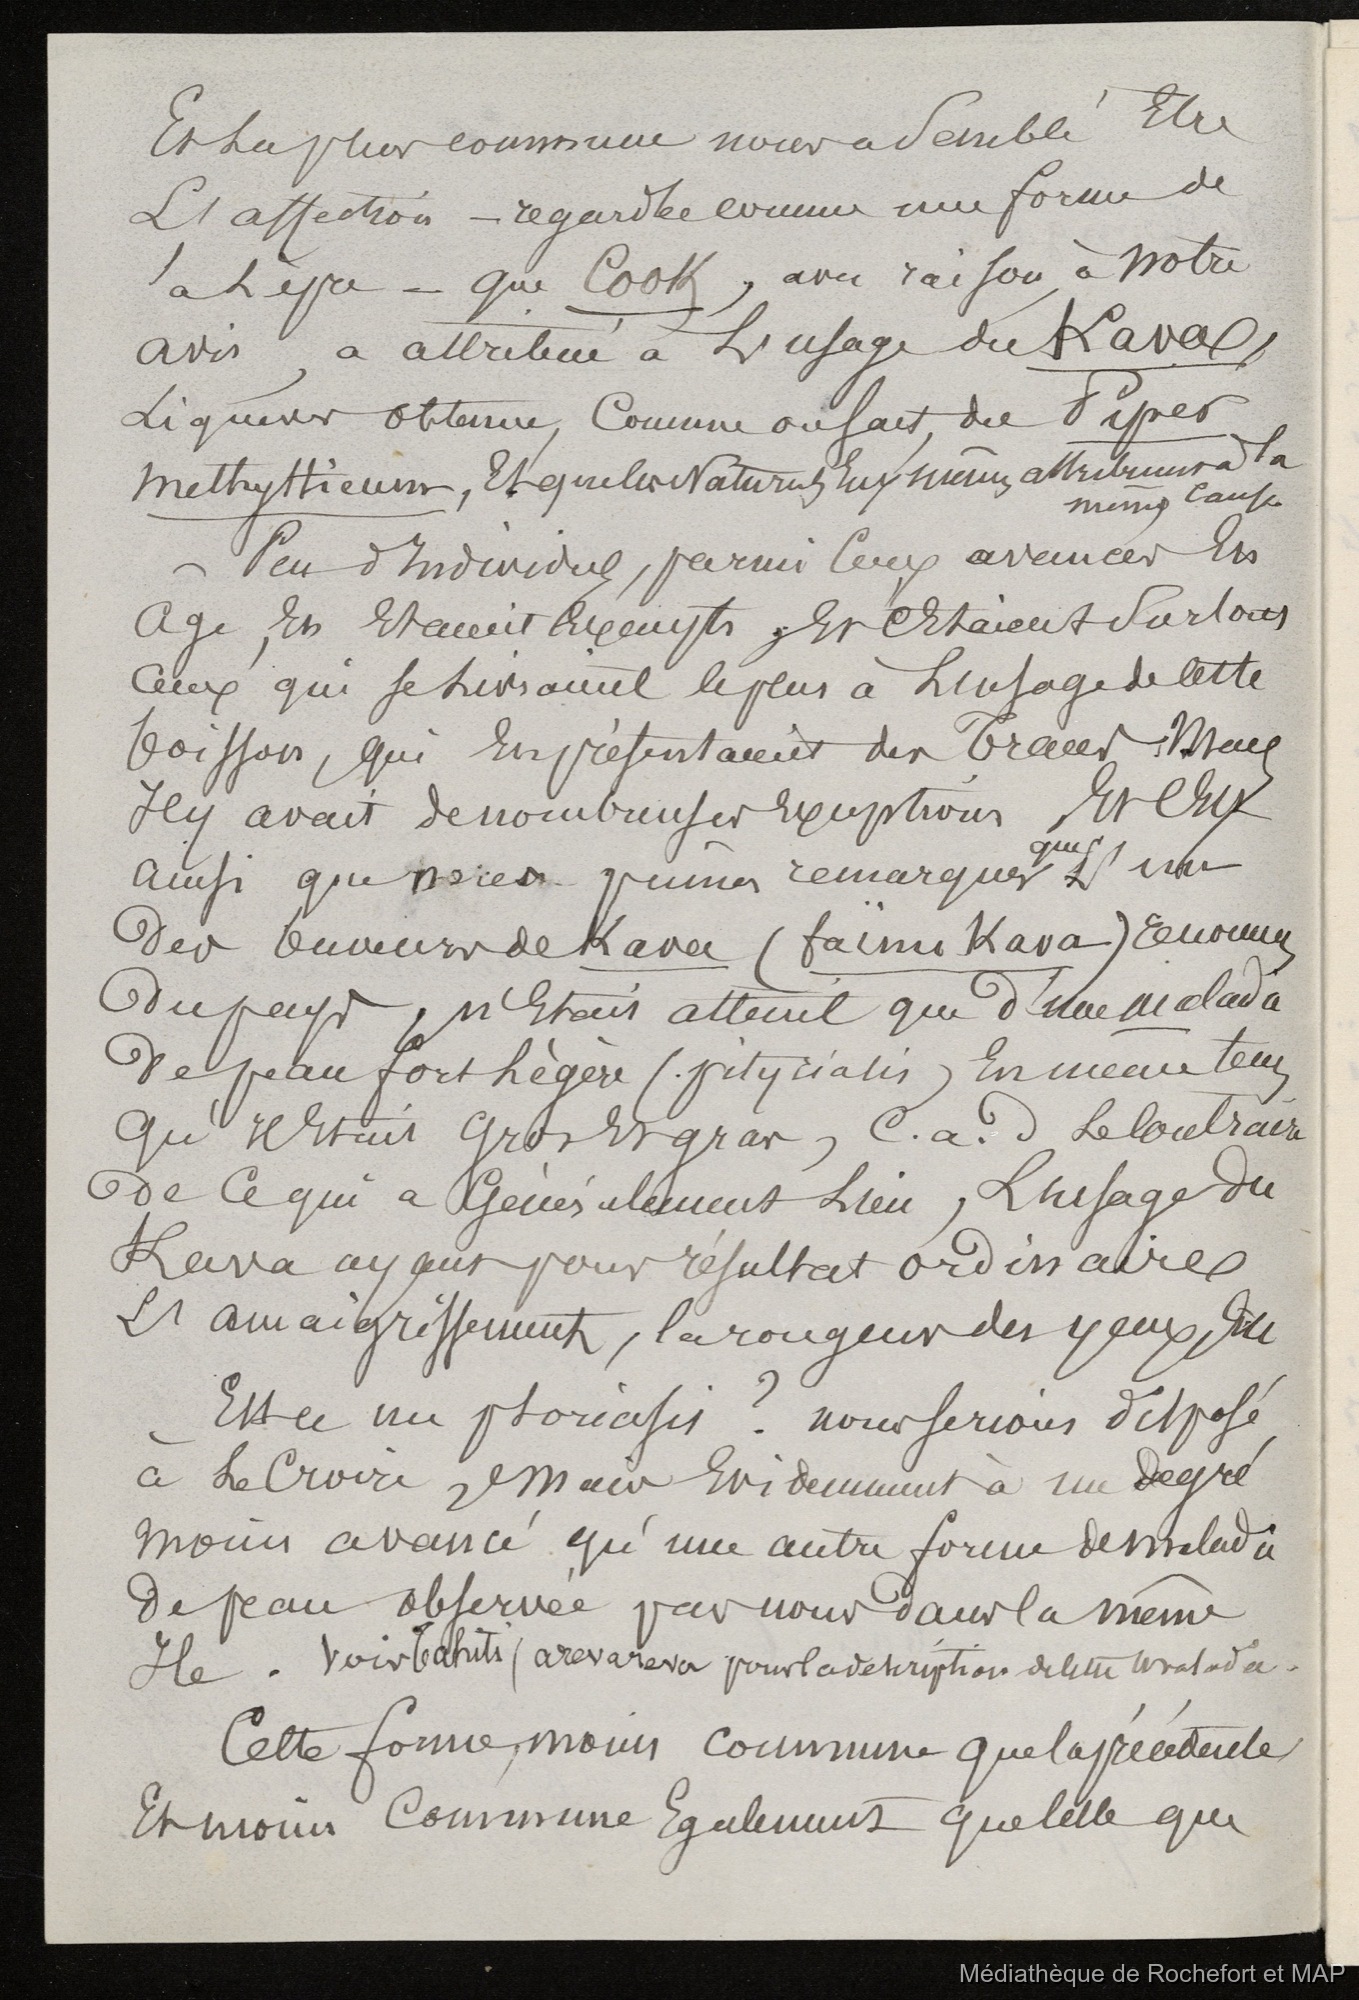 Et la plus commune nous a semblé Etre
L'affection – regardée comme une forme de
la Lèpre – que Cook, avec raison, à notre
avis, a attribué à L'usage du Kava,
Liqueur obtenue, Comme on sait, du Piper
methysticum, Et que les Naturels Eux mêmes attribuent à la
même cause
– Peu d'Individus, parmi Ceux avancés En
Age, En Etaient Exempts, Et C'Etaient surtout
Ceux qui se livraient le plus à L'usage de cette
boisson, qui En présentaient des Traces. Mais
Il y avait de nombreuses Exceptions Et C'Est
Ainsi que nous pûmes remarquer que L'un
Des buveurs de Kava (faïnu Kava) renommés
Du pays, n'Etait atteint que d'une maladie
De peau fort Légère (pityriasis) En même tems
Qu'il Etait Gros Et gras, C.a.d Le Contraire
De Ce qui a Généralement Lieu, L'usage Du
Kava ayant pour résultat ordinaire
L'amaigrissement, la rougeur des yeux, Etc
Est-ce un psoriasis ? nous serions disposé
à Le Croire, Mais Evidemment à un degré
moins avancé qu'une autre forme de maladie
De peau observée par nous dans la même
Ile. Voir Tahiti (arevareva pour la description de cette maladie.
Cette forme, moins commune que la précédente
Et moins Commune Egalement que celle que
Médiathèque de Rochefort et MAP